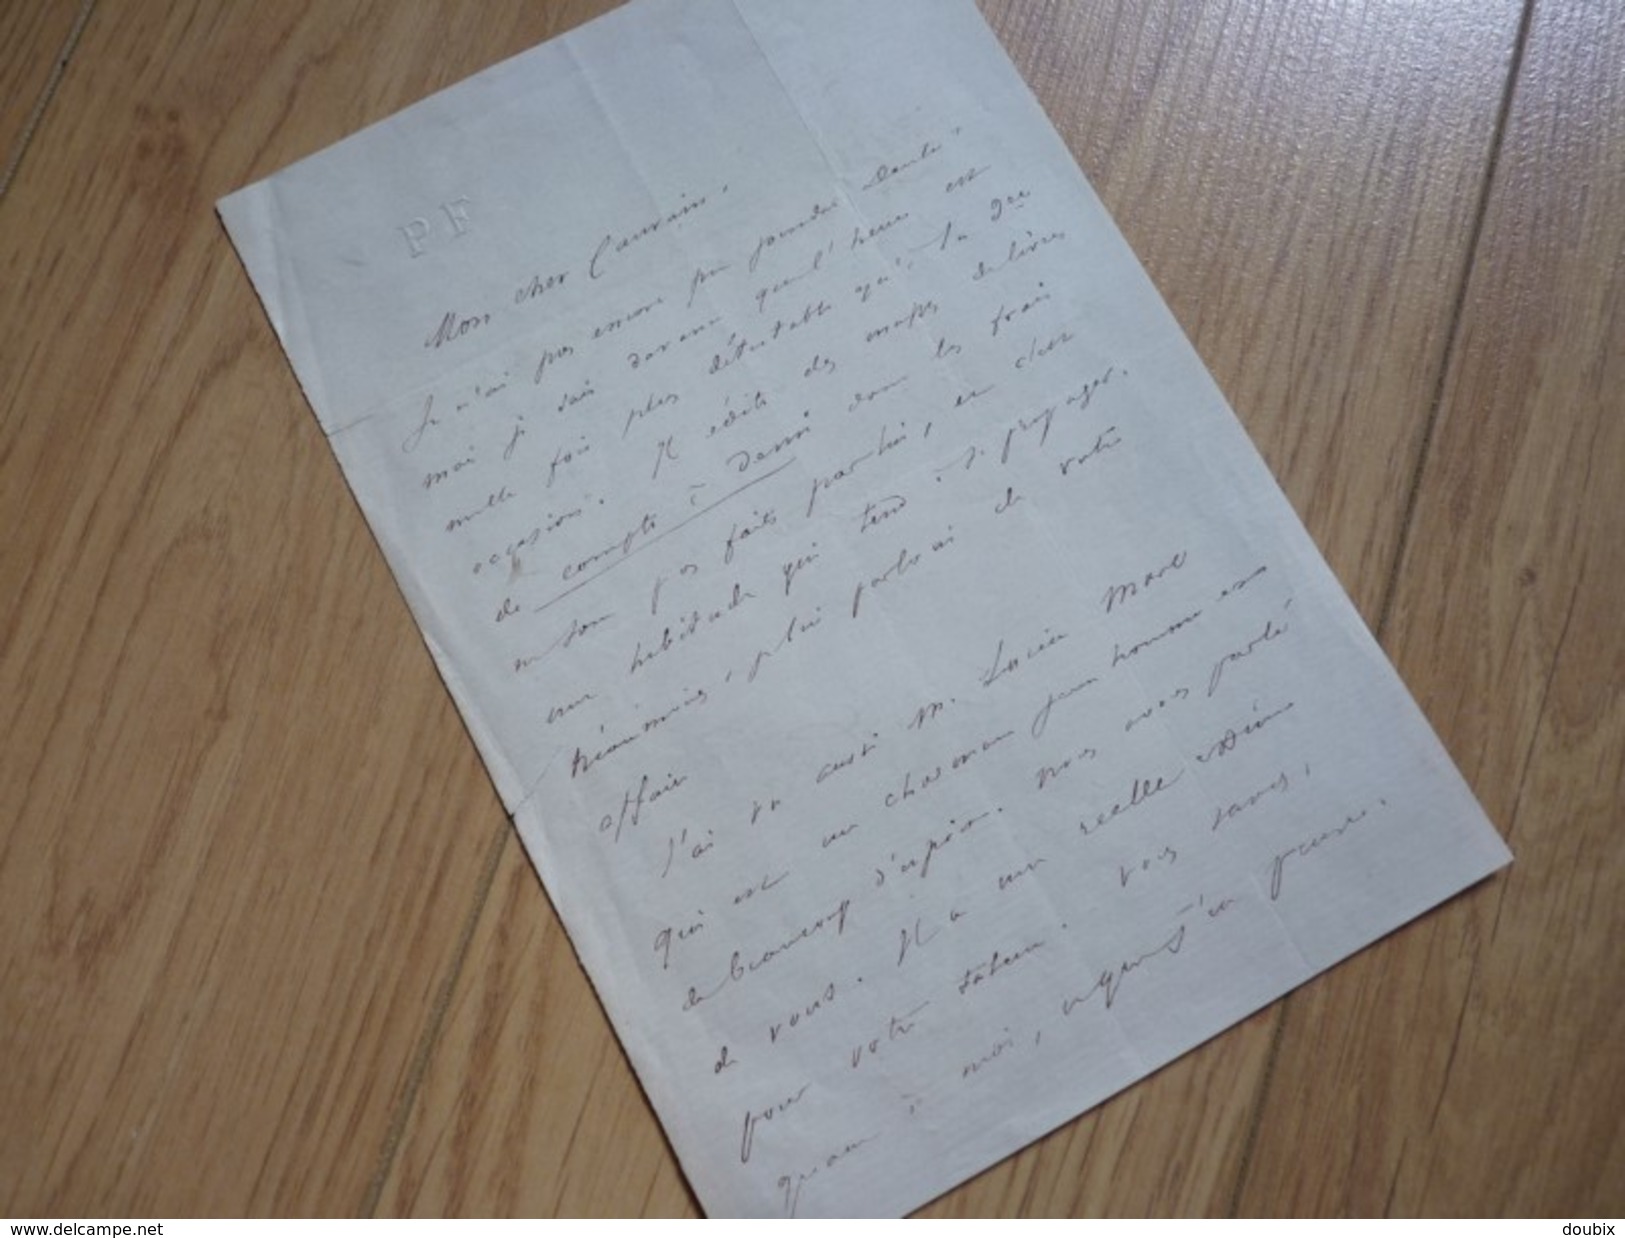 PF
Mon cher Cauvain,
Je n'ai pas encore pu joindre Dentu.
mais je sais davance que l'heure est
mille fois plus détestable qu'à la 9re
occasion. Il édite des masses de livres
de compte à demi dont les frais
ne sont pas faits par lui, et c'est
une habitude qui tend à se propager.
Néanmoins, je lui parlerai de votre
affaire
J'ai vu aussi M. Lucien Marc
qui est un charmant jeune homme et a
de beaucoup d'esprit. Nous avons parlé
de vous. Il a une réelle estime
pour votre talent. Vous savez,
quant à moi, ce que j'en pense.
www.delcampe.net
doubix